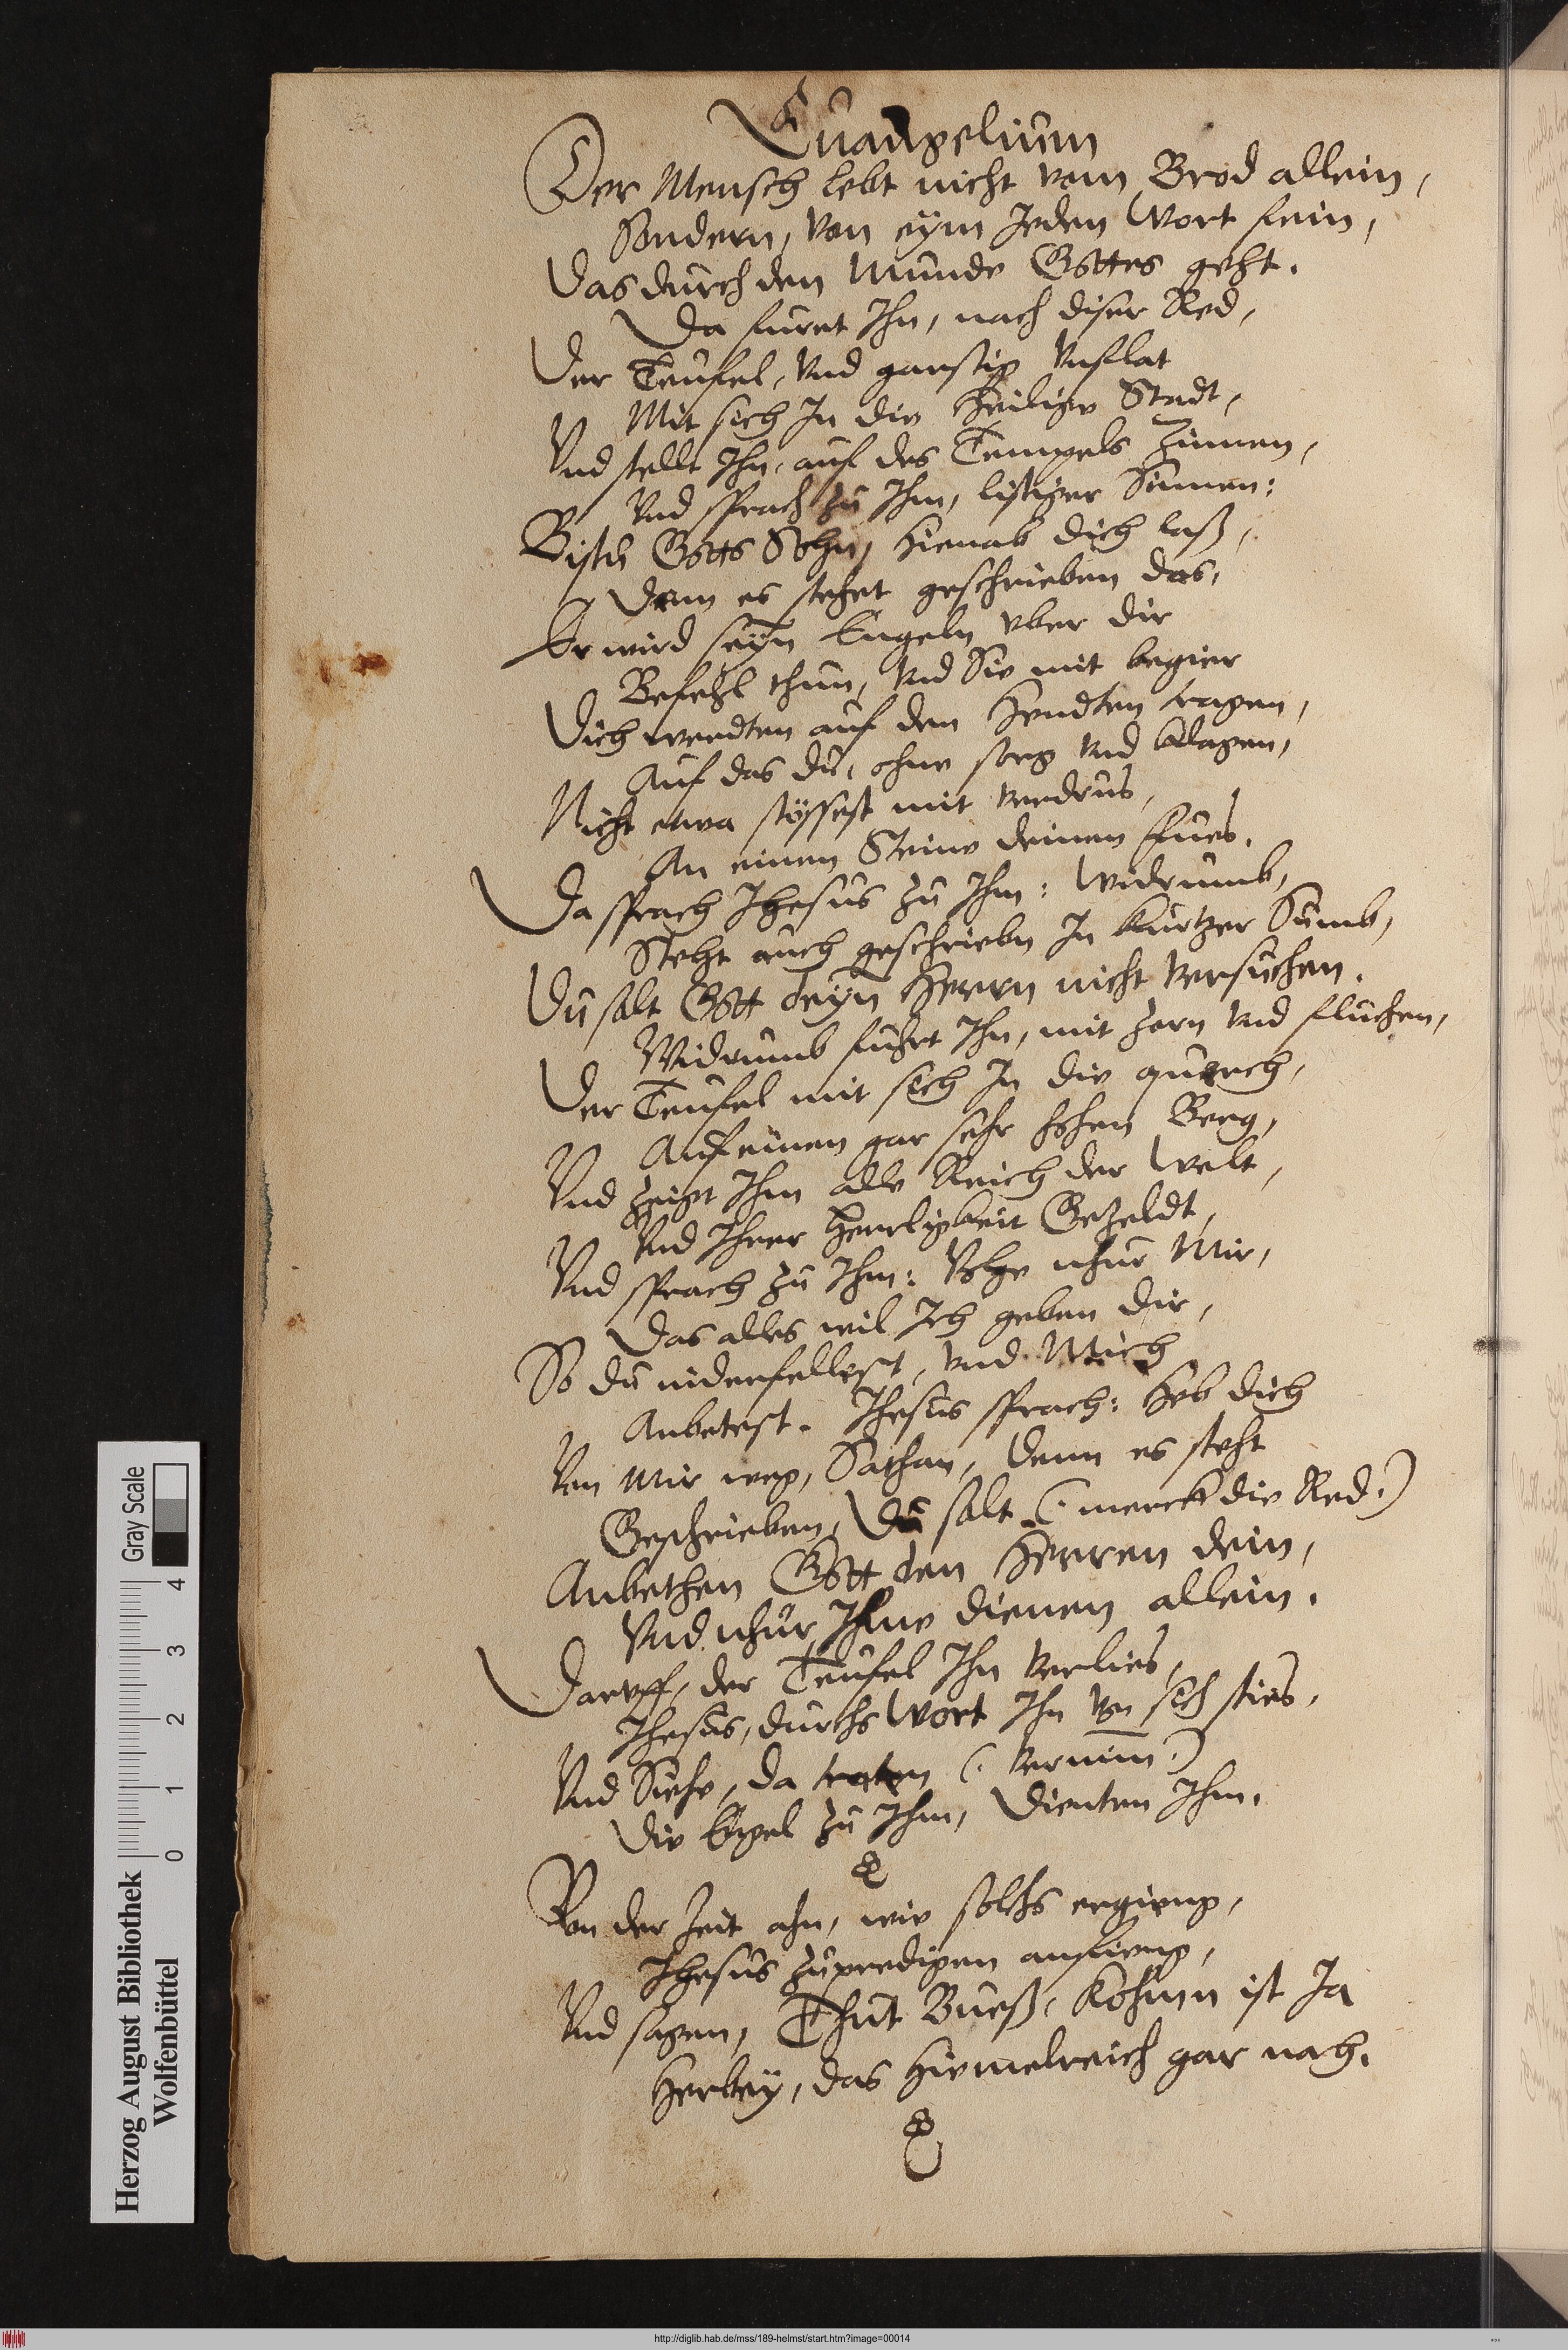 Euangelium
Der Mensch lebt nicht vom Brod allein,
Sondern, von eÿm Jeden Wort fein,
Das durch den Munde Gottes geht.
Da furet Ihn, nach diser Red,
Der Teufel, Vnd garstig Vnflat
Mit sich In die Heilige Stadt,
Vnd stellt Ihn, auf des Tempels Zinnen,
Vnd sprach zu Ihm, listiger Sinnen:
Bistu Gotts Sohn, hienab dich laß,
Denn es stehet geschrieben das,
Er wird seÿn Engeln vber dir
Befehl thun, Vnd Sie mit begier
Dich werdten auf den Hendten tragen,
Auf das du, ohne sorg vnd klagen,
Nicht etwa stössest mit verdrus,
An einen Steine deinen Fues.
Da sprach Jhesus zu Ihm: Widrumb,
Steht auch geschriebn In kurtzer Sumb,
Du salt Gott deÿn Herrn nicht versuchen.
Widrumb fuhrt Ihn, mit zorn vnd fluchen,
Der Teufel mit sich In die querch,
Auf einen gar sehr hohen Berg,
Vnd zeigt Ihm alle Reich der Welt,
Vnd Ihrer Herrligkeit Gezeldt,
Vnd sprach zu Ihm: Volge nhur Mir,
Das alles wil Ich geben dir,
So du niderfellest, vnd Mich
Anbetest. Jhesus sprach: Heb dich
Von Mir weg, Sathan, Denn es steht
Geschrieben, Du salt (: merck die Red :)
Anbethen Gott den Herren dein,
Vnd nhur Ihme dienen allein.
Daruff, der Teufel Ihn verlies,
Jhesus, durchs Wort Ihn von sich sties,
Vnd Siehe, da traten (: vernimm :)
Die Engel zu Ihm, Dienten Ihm.
Von der Zeit ahn, wie solchs ergieng,
Jhesus zu predigen anfieng,
Vnd sagen, Thut Bueß, Kohmn ist Ja
Herbeÿ, das Hiemelreich gar nach.
Herzog August Bibliothek
Wolfenbüttel
Gray Scale
0 1 2 3 4
http://diglib.hab.de/mss/189-helmst/start.htm?image=00014